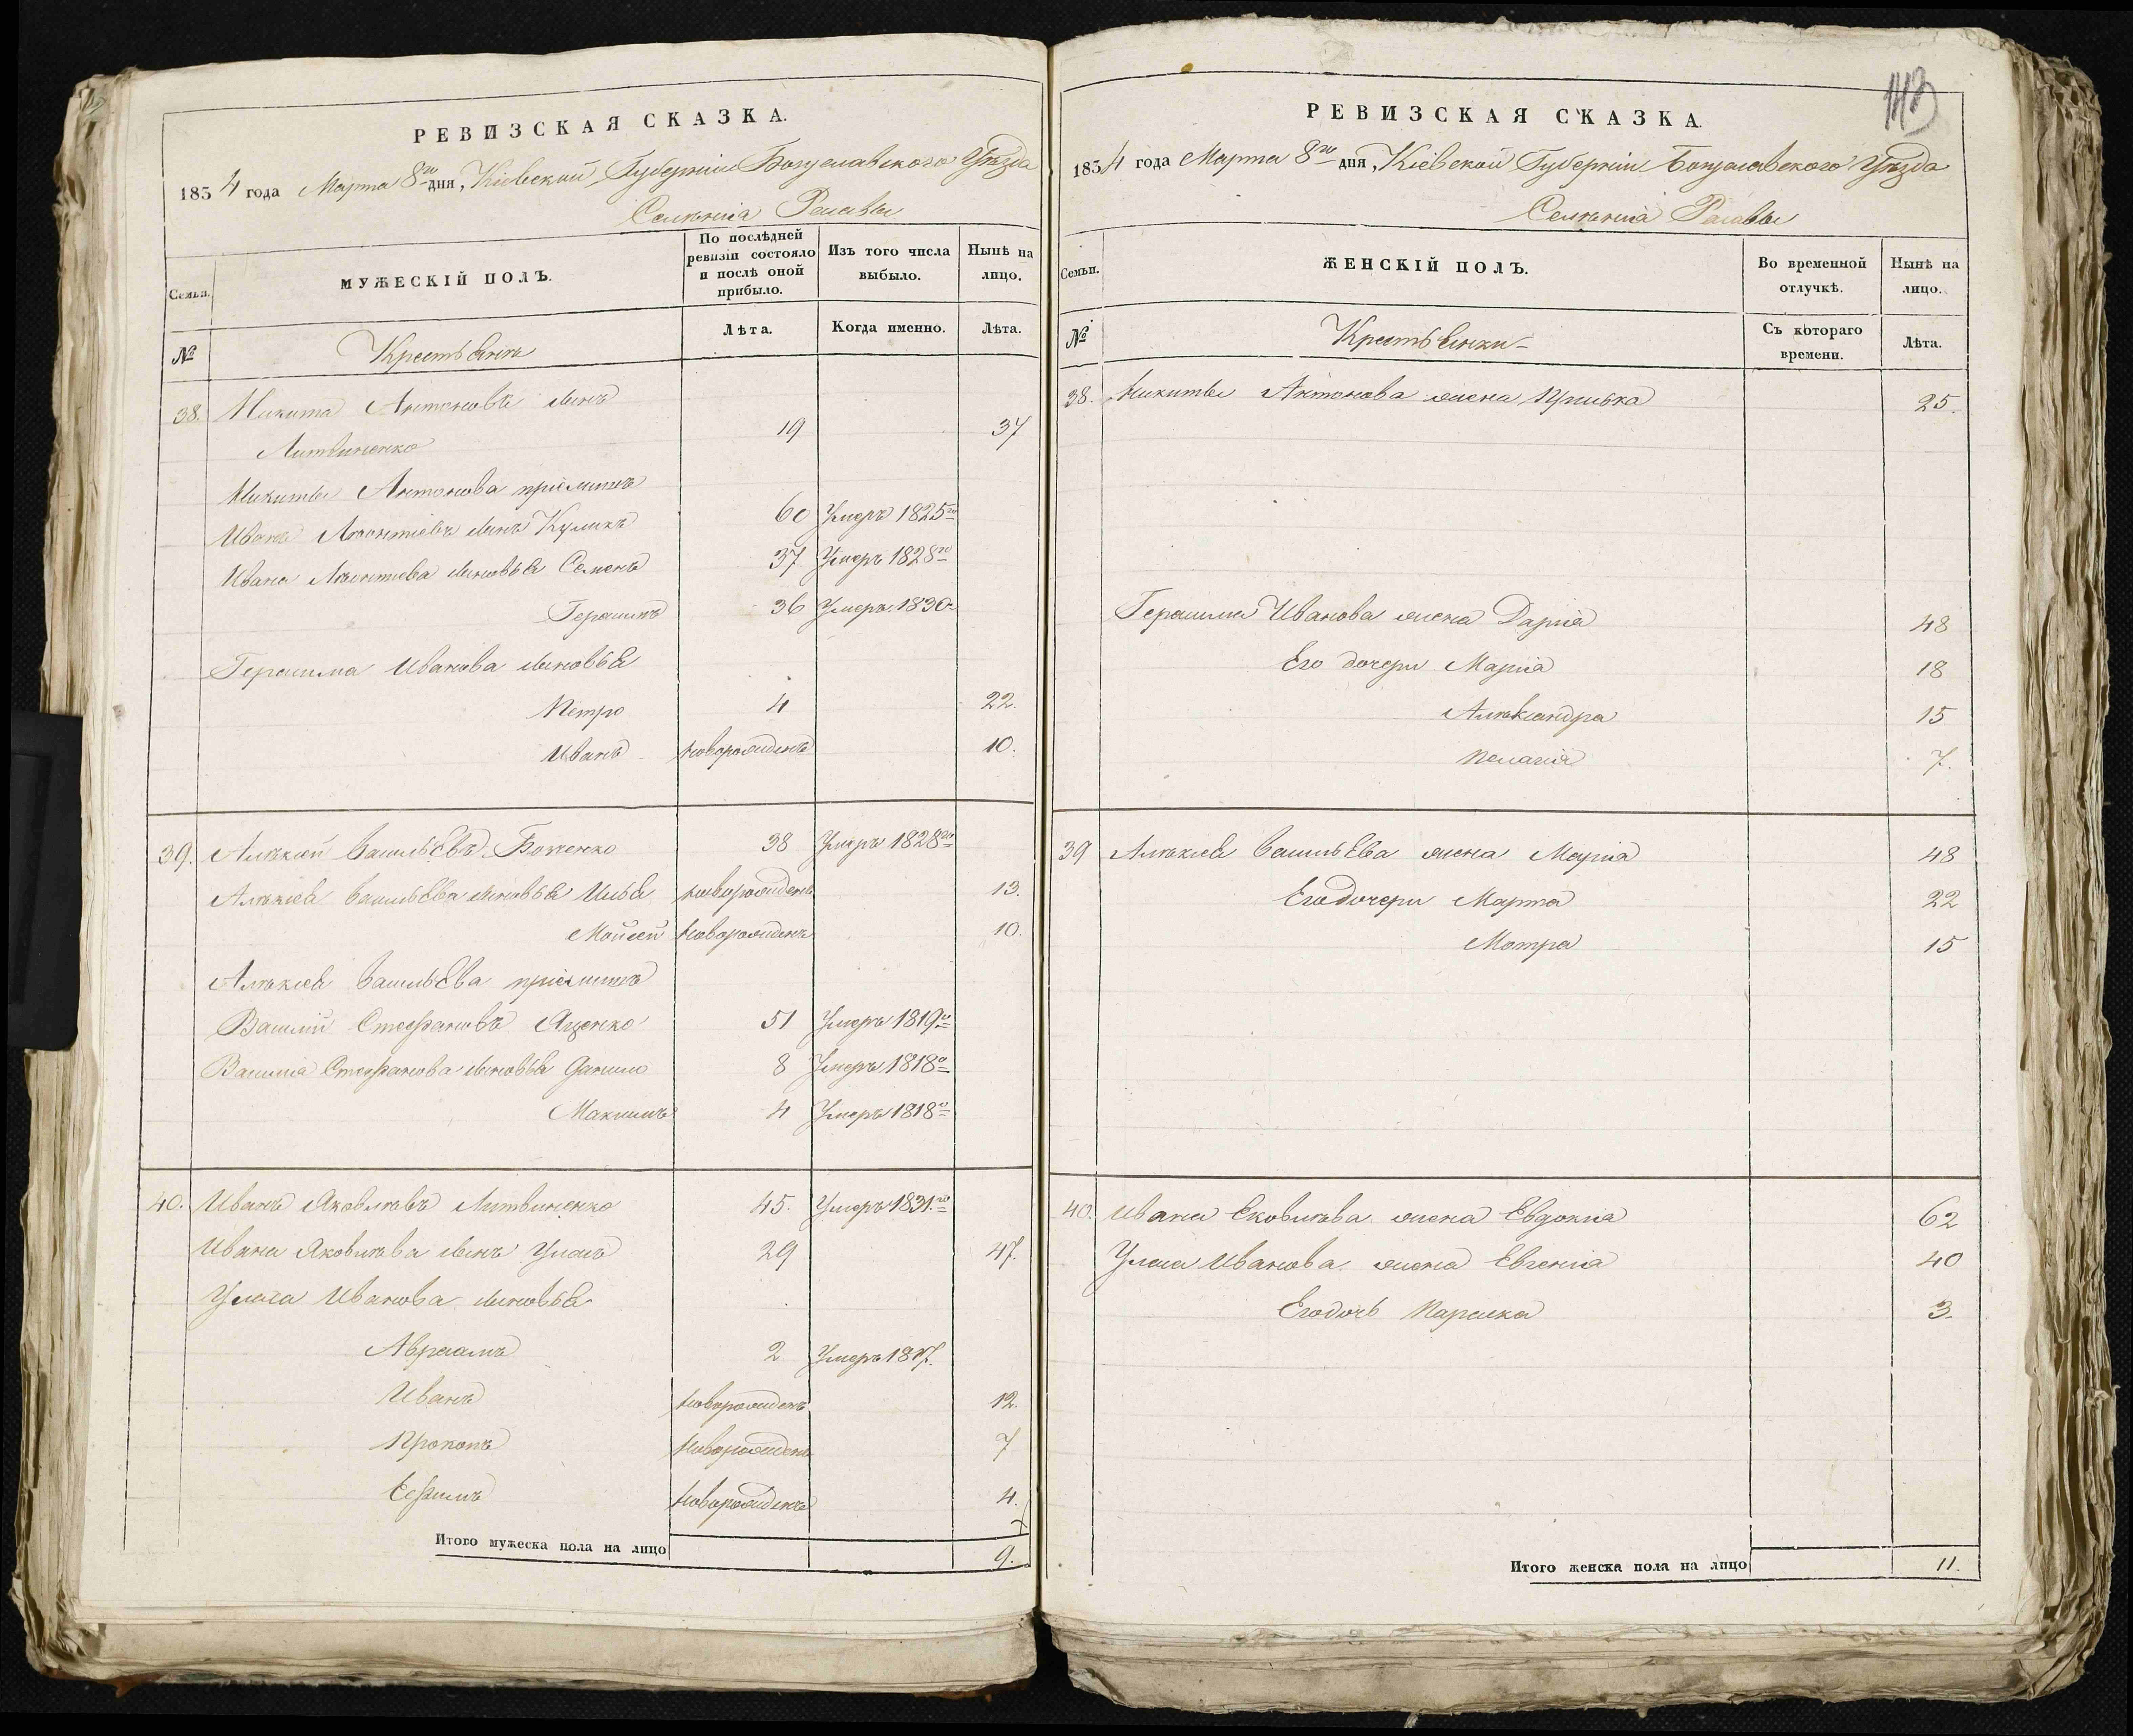 РЕВИЗСКАЯ СКАЗКА.
1834 года Марта 8го дня, Кіевской Губерніи Богуславского Уѣзда
Селѣнія
Семьи.
МУЖЕСКІЙ ПОЛЪ.
По послѣдней ревизіи состояло и послѣ оной прибыло.
Изъ того числа выбыло.
Нынѣ на лицо.
№
Крестьянѣ
Лѣта.
Когда именно.
Лѣта.
38. Никита Антоновъ сынъ
Литвиненко 19 37
Никиты Антонова пріемишъ
Иванъ Леонтіевъ сынъ Куликъ 60 Умеръ 1825го
Ивана Леонтіева сыновья Семенъ 37 Умеръ 1828го
Герасимъ 36 Умеръ 1830го
Герасима Иванова сыновья
Петро 4 22.
Иванъ новорожденъ 10.
39. Алѣксей Васильевъ Боженко 38 Умеръ 1828го
Алѣксея Васильева сыновья Илья новорожденъ 13.
Мойсей новорожденъ 10.
Алѣксея Васильева пріемишъ
Василій Стефановъ Яценко 51 Умеръ 1819го
Василія Стефанова сыновья Данило 8 Умеръ 1818го
Максимъ 4 Умеръ 1818го
40. Иванъ Яковлѣвъ Литвиненко 45. Умеръ 1831.го
Ивана Яковлѣва сынъ Уласъ 29 47.
Уласа Иванова сыновья
Авраамъ 2 Умеръ
Иванъ новорожденъ 12.
Прокопъ новорожденъ 7
Ефимъ новорожденъ 4.
Итого мужеска пола на лицо 9.
РЕВИЗСКАЯ СКАЗКА.
1834 года Марта 8го дня, Кіевской Губерніи Богуславского Уѣзда
Селѣнія
Семьи.
ЖЕНСКІЙ ПОЛЪ.
Во временной отлучкѣ.
Нынѣ на лицо.
№
Крестьянки
Съ котораго времени.
Лѣта.
38. Никиты Антонова жена Приська 25.
Герасима Иванова жена Дарія 48
Его дочери Марія 18
Алѣксандра 15
Пелагія 7.
39 Алѣксея Васильева жена Марія 48
Его дочери Марта 22
Мотра 15
40. Ивана Яковлѣва жена Евдокія 62
Уласа Иванова жена Евгенія 40
Его дочь Параска 3.
Итого женска пола на лицо 11.